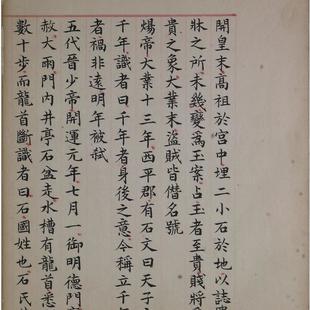 開皇末高祖於宮中埋二小石於地以誌
牀之所未幾變為玉案占玉者至貴賤將
貴之象大業末盜賊皆僭名號
煬帝大業十三年西平郡有石文曰天子立
千年識者曰千年者身後之意今稱立千
者禍非遠明年被弒
五代晉少帝開運元年七月一御明德門
赦大雨門內井亭石盆走水槽有龍首悉
數十步而龍首斷識者曰石國姓也石氏